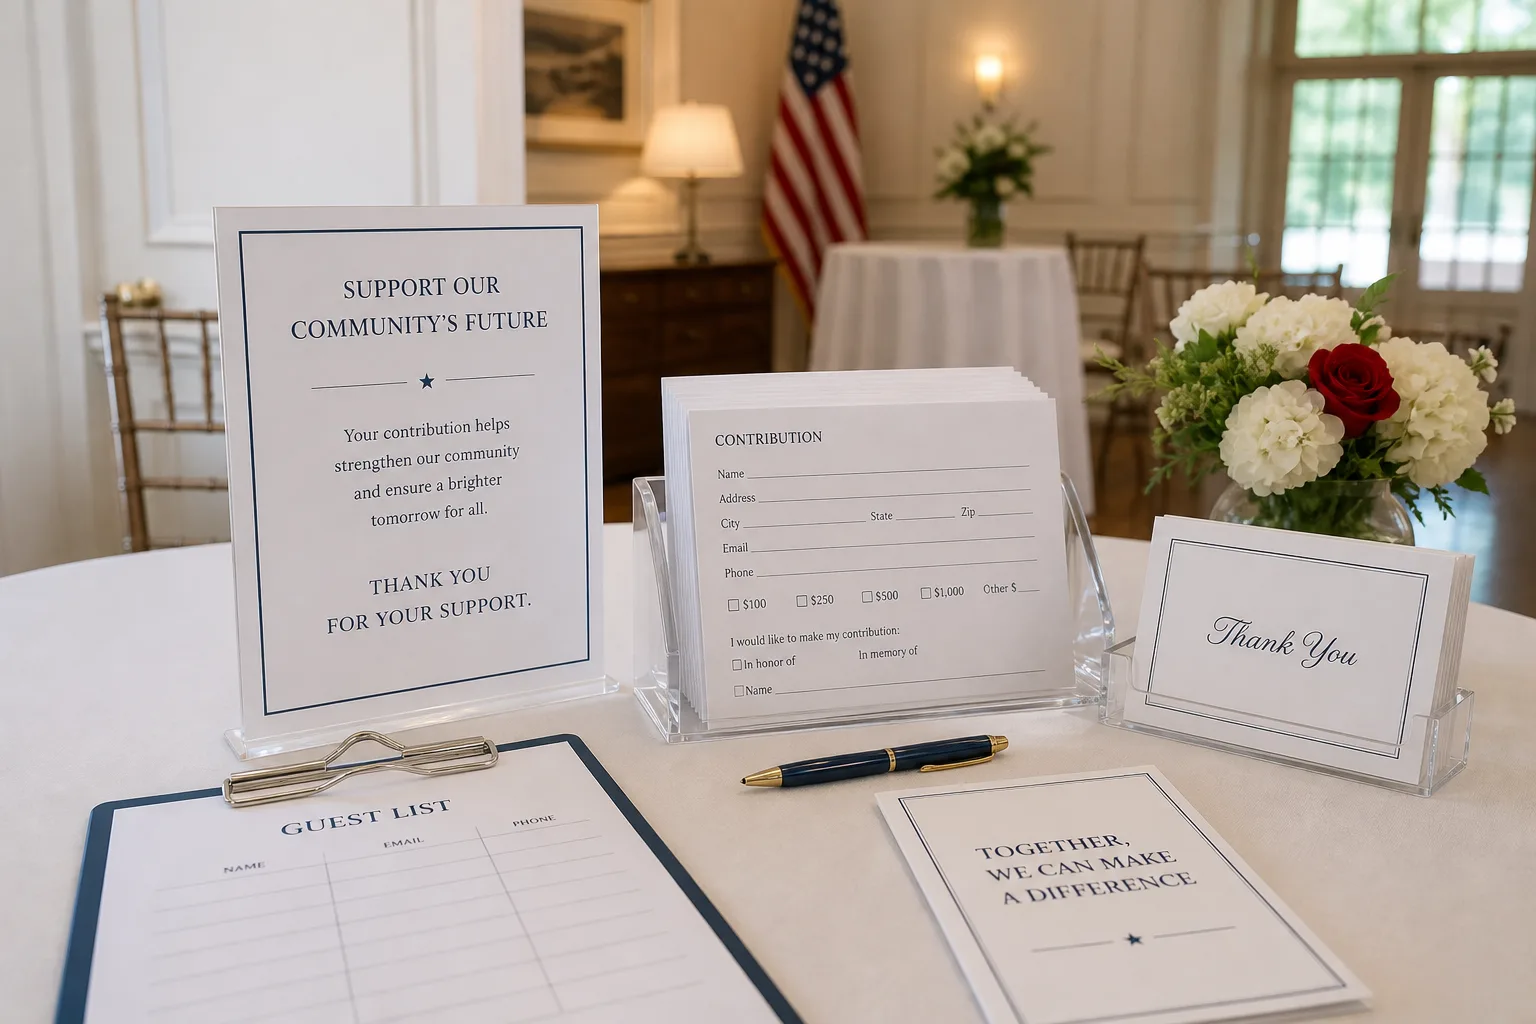 SUPPORT OUR
COMMUNITY'S FUTURE
Your contribution helps
strengthen our community
and ensure a brighter
tomorrow for all.
THANK YOU
FOR YOUR SUPPORT.
CONTRIBUTION
Name
Address
City State Zip
Email
Phone
$100 $250 $500 $1,000 Other $
I would like to make my contribution:
In honor of In memory of
Name
Thank You
GUEST LIST
NAME EMAIL PHONE
TOGETHER,
WE CAN MAKE
A DIFFERENCE